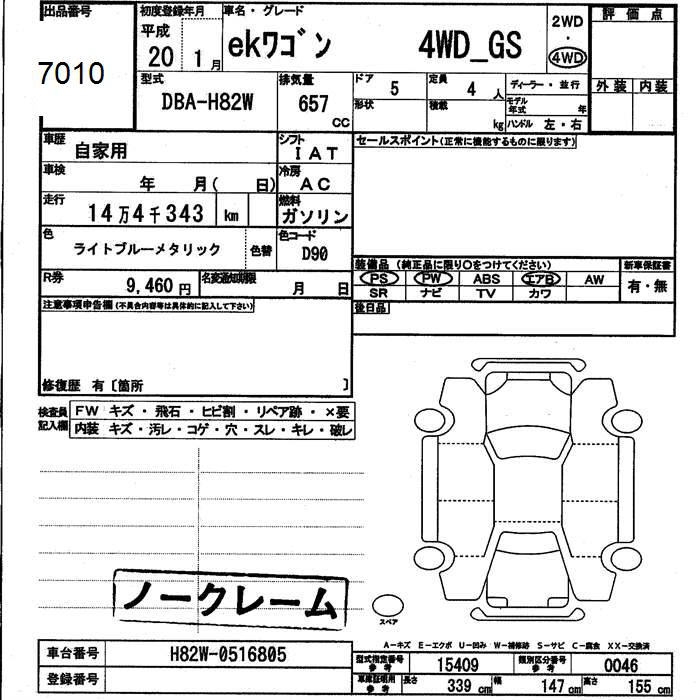 出品番号
7010
初度登録年月
平成
20 1月
車名・グレード
ekワゴン 4WD_GS
2WD
・
4WD
評価点
外装 内装
型式
DBA-H82W
排気量
657
CC
ドア 5
定員 4人
ディーラー・並行
形状
積載 kg
モデル年式 年
ハンドル 左・右
車歴
自家用
シフト
IAT
セールスポイント(正常に機能するものに限ります)
車検
年 月( 日)
冷房
AC
走行
14万4千343 km
燃料
ガソリン
色
ライトブルーメタリック
色替
色コード
D90
装備品 (純正品に限り〇をつけてください)
新車保証書
PS PW ABS エアB AW
SR ナビ TV カワ
有・無
R券
9,460円
名変通知期限
月 日
後日品
注意事項申告欄(不具合内容等は具体的に記入して下さい)
修復歴 有〔箇所 〕
検査員
記入欄
FW キズ・飛石・ヒビ割・リペア跡・×要
内装 キズ・汚レ・コゲ・穴・スレ・キレ・破レ
ノークレーム
スペア
A−キズ E−エクボ U−凹み W−補修跡 S−サビ C−腐食 XX−交換済
車台番号
H82W-0516805
登録番号
型式指定番号
参考
15409
類別区分番号
参考
0046
車庫証明用
参考
長さ 339cm
幅 147cm
高さ 155cm